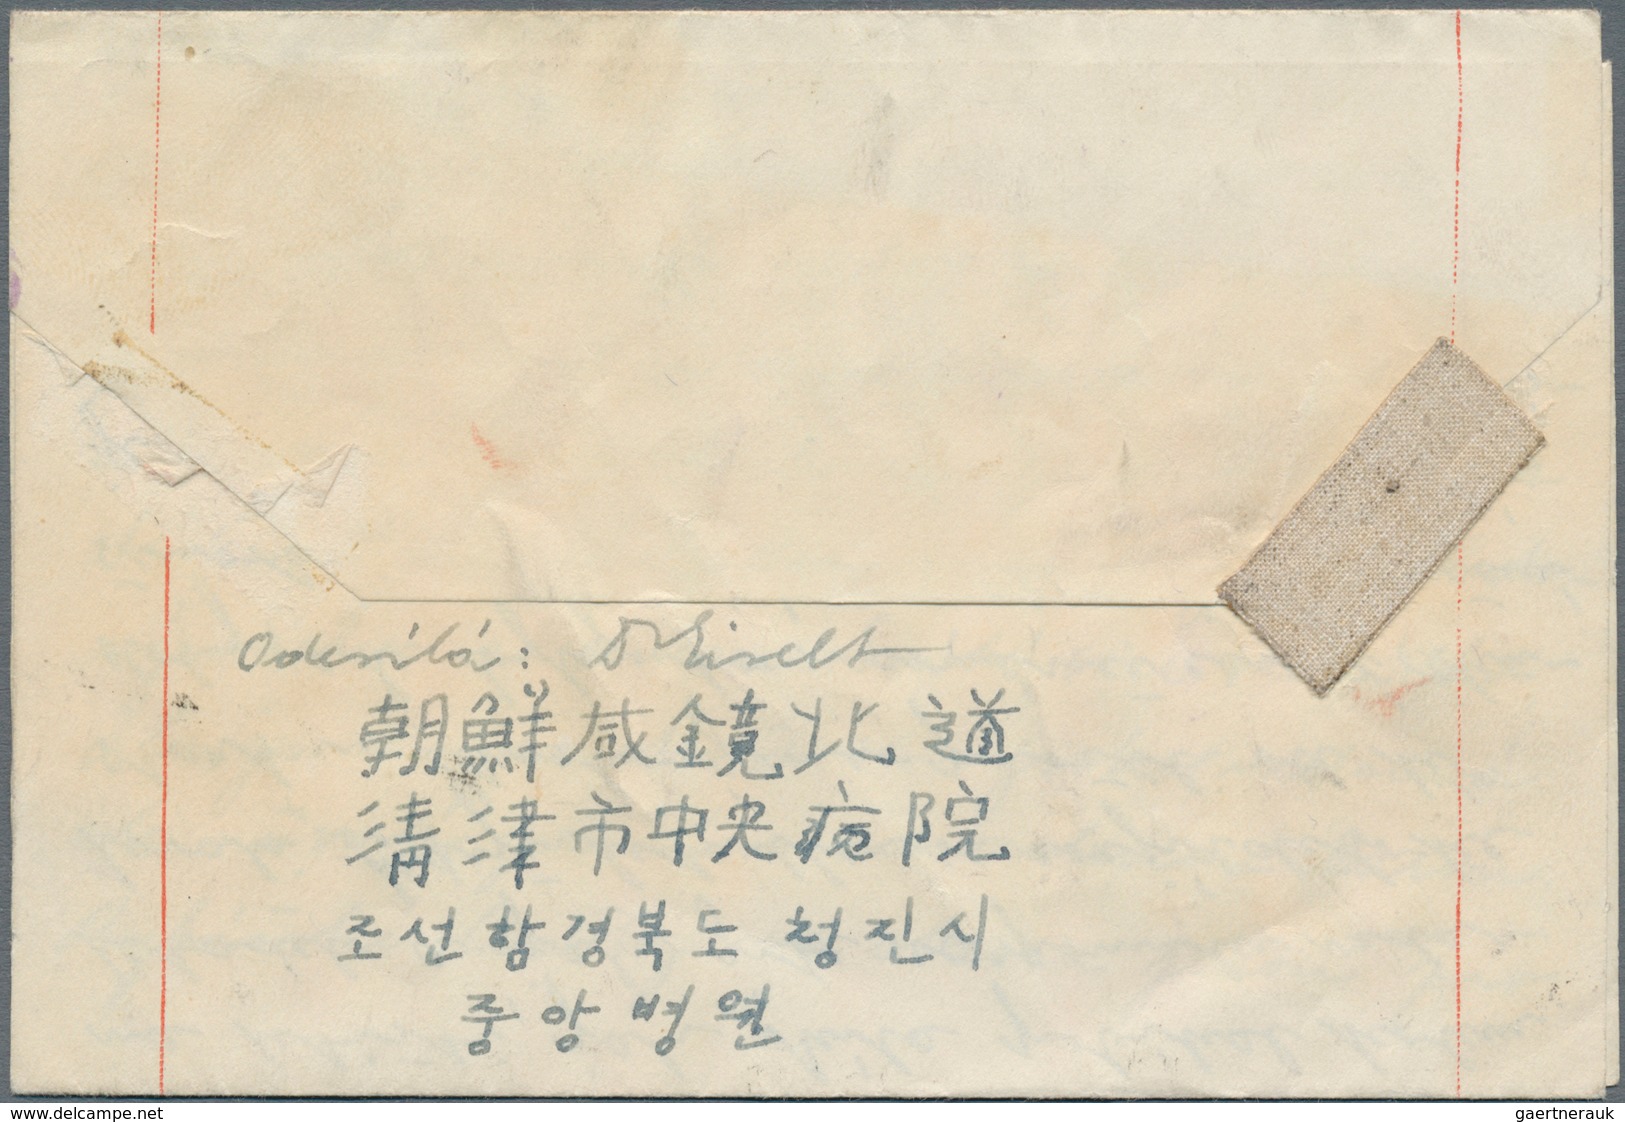 Odesílá: Dr Eiselt
朝鮮咸鏡北道
淸津市中央病院
조선함경북도 청진시
중앙병원
www.delcampe.net
gaertnerauk